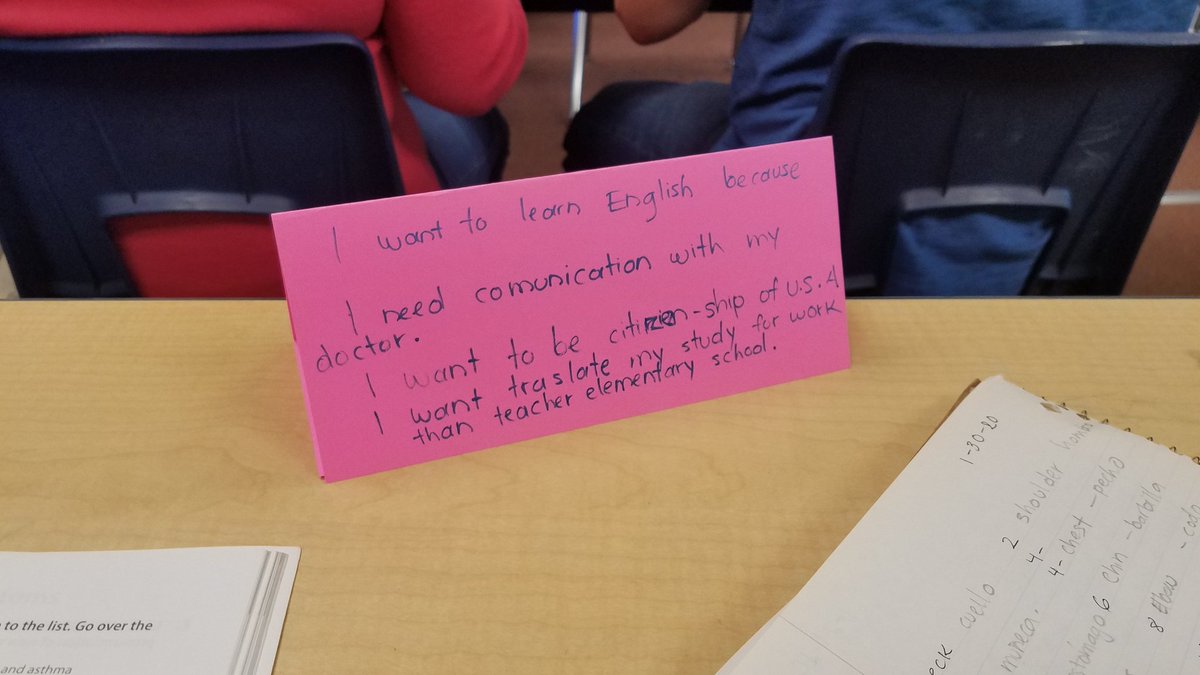 I want to learn English because
I need comunication with my
doctor.
I want to be citizen-ship of U.S.A
I want traslate my study for work
than teacher elementary school.
to the list. Go over the
and asthma
1-30-20
2 shoulder
4-
4- chest - pecho
6 chin - barbilla
8 Elbow - codo
cuello
muneca.